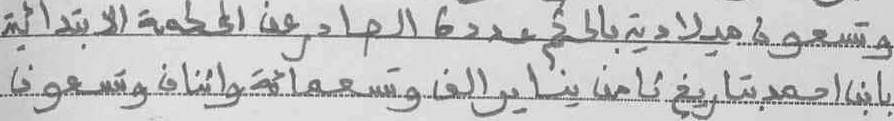 وتسعون ميلادية بالحكم عدد 6 الصادر عن المحكمة الابتدائية
بابن احمد بتاريخ ثامن يناير الف وتسعمائة واثنان وتسعون